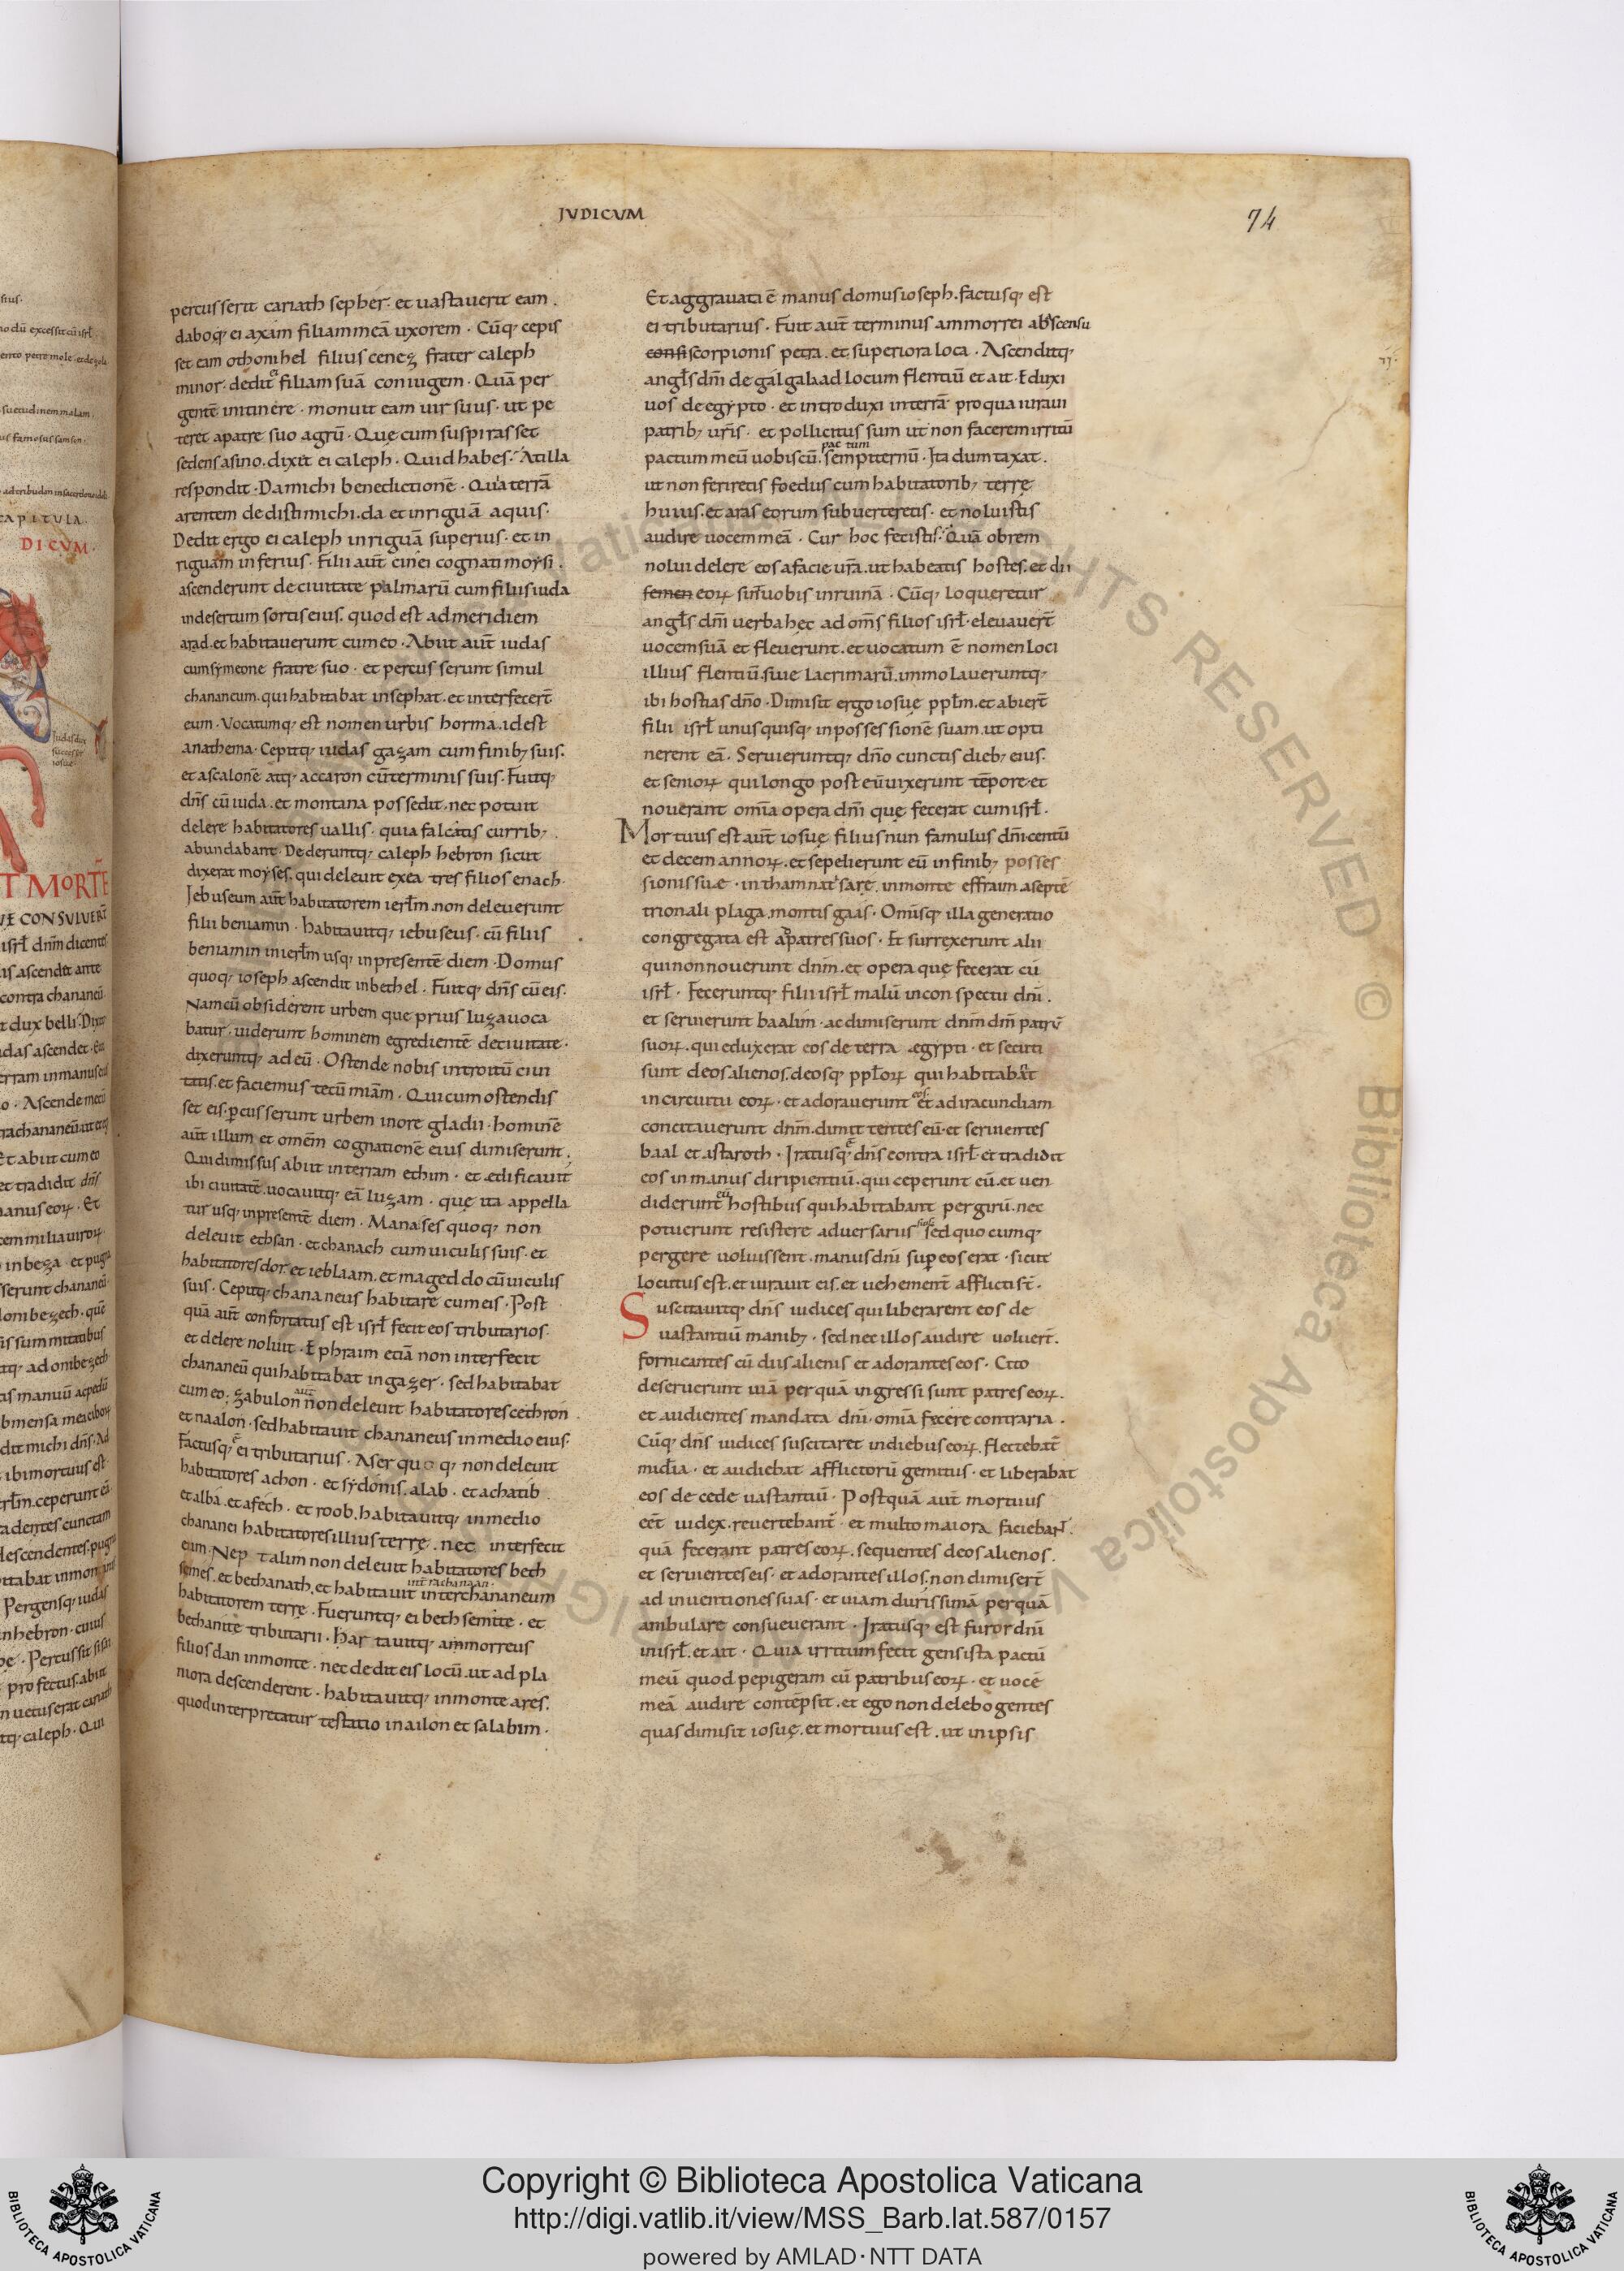 JUDICUM
74
percusserit cariath sepher. et uastauerit eam.
daboq; ei axam filiam meā uxorem. Cūq; cepis
set eam othonihel filius cenez frater caleph
minor. dedit ei filiam suā coniugem. Quā per
gentē in itinere. monuit eam uir suus. ut pe
teret a patre suo agrū. Quę cum suspirasset
sedens asino. dixit ei caleph. Quid habes? At illa
respondit. Da michi benedictionē. Quia terrā
arentem dedisti michi. da et inriguā aquis.
Dedit ergo ei caleph inriguā superius. et in
riguam inferius. Filii aut̄ cinei cognati moysi.
ascenderunt de ciuitate palmarū cum filiis iuda
in desertum sortis eius. quod est ad meridiem
arad. et habitauerunt cum eo. Abiit aut̄ iudas
cum symeone fratre suo. et percusserunt simul
chananeum. qui habitabat in sephat. et interfecer̄
eum. Vocatumq; est nomen urbis horma. id est
anathema. Cepitq; iudas gazam cum finib; suis.
et ascalonē atq; accaron cū terminis suis. Fuitq;
dn̄s cū iuda. et montana possedit. nec potuit
delere habitatores uallis. quia falcatis currib;
abundabant. Dederuntq; caleph hebron sicut
dixerat moyses. qui deleuit ex ea tres filios enach.
Jebuseum aut̄ habitatorem ierl̄m. non deleuerunt
filii beniamin. habitauitq; iebuseus. cū filiis
beniamin in ierl̄m usq; in presentē diem. Domus
quoq; ioseph ascendit in bethel. Fuitq; dn̄s cū eis.
Nam cū obsiderent urbem que prius luza uoca
batur. uiderunt hominem egredientē de ciuitate.
dixeruntq; ad eū. Ostende nobis introitū ciui
tatis. et faciemus tecū miām. Qui cum ostendis
set eis. ꝑcusserunt urbem in ore gladii. hominē
aut̄ illum et omēm cognationē eius dimiserunt.
Qui dimissus abiit in terram ethim. et ædificauit
ibi ciuitatē. uocauitq; eā luzam. quę ita appella
tur usq; in presentē diem. Manases quoq; non
deleuit ethsan. et thanach cum uiculis suis. et
habitatores dor. et ieblaam. et mageddo cū uiculis
suis. Cepitq; chananeus habitare cum eis. Post
quā aut̄ confortatus est isrl̄ fecit eos tributarios.
et delere noluit. Ephraim etiā non interfecit
chananeū qui habitabat in gazer. sed habitabat
cum eo. zabulon aut̄ non deleuit habitatores cethron
et naalon. sed habitauit chananeus in medio eius.
Factusq; ē ei tributarius. Aser quoq; non deleuit
habitatores achon. et sydonis. alab. et achatib
et alba. et afech. et roob. habitauitq; in medio
chananei habitatoris illius terre. nec interfecit
eum. Neptalim non deleuit habitatores beth
semes. et bethanath. et habitauit inter chananeum
habitatorem terre. Fueruntq; ei beth semite. et
bethanite tributarii. Har tauitq; ammorreus
filios dan in monte. nec dedit eis locū. ut ad pla
niora descenderent. habitauitq; in monte ares.
quod interpretatur testatio in ailon et salabim.
Et aggrauata ē manus domus ioseph. factusq; est
ei tributarius. Fuit aut̄ terminus ammorrei ab ascensu
scorpionis petra. et superiora loca. Ascenditq;
angl̄s dn̄i de galgala ad locum flentiū et ait. Eduxi
uos de egypto. et introduxi in terrā pro qua iuraui
patrib; uris̄. et pollicitus sum ut non facerem irritū
pactum meū uobiscū. pactum sempiternū. Ita dumtaxat.
ut non feriretis foedus cum habitatorib; terrę
huius. et aras eorum subuerteretis. et noluistis
audire uocem meā. Cur hoc fecistis? Quā obrem
nolui delere eos a facie urā. ut habeatis hostes. et dii
eoꝝ sint uobis in ruinā. Cūq; loqueretur
angl̄s dn̄i uerba hec ad om̄s filios isrl̄. eleuauer̄
uocem suā et fleuerunt. et uocatum ē nomen loci
illius flentiū. siue lacrimarū. immolaueruntq;
ibi hostias dn̄o. Dimisit ergo iosue ppl̄m. et abier̄
filii isrl̄ unusquisq; in possessionē suam. ut opti
nerent eā. Seruieruntq; dn̄o cunctis dieb; eius.
et senioꝝ qui longo post eū uixerunt tēpore. et
nouerant omīa opera dn̄i quę fecerat cum isrl̄.
Mortuus est aut̄ iosuę filius nun famulus dn̄i. centū
et decem annoꝝ. et sepelierunt eū in finib; posses
sionis suæ. in thamnat sare. in monte effraim. a septē
trionali plaga. montis gaas. Omīsq; illa generatio
congregata est ad patres suos. Et surrexerunt alii
qui non nouerunt dn̄m. et opera quę fecerat cū
isrl̄. Feceruntq; filii isrl̄ malū in conspectu dn̄i.
et seruierunt baalim. ac dimiserunt dn̄m dm̄ patrū
suoꝝ. qui eduxerat eos de terra ægypti. et secuti
sunt deos alienos. deosq; ppl̄oꝝ qui habitabant
in circuitu eoꝝ. et adorauerunt eos. et ad iracundiam
concitauerunt dn̄m. dimittentes eū. et seruientes
baal et astaroth. Iratusq; ē dn̄s contra isrl̄. et tradidit
eos in manus diripientiū. qui ceperunt eū. et uen
diderunt eū hostibus qui habitabant per girū. nec
potuerunt resistere aduersariis suis. sed quocumq;
pergere uoluissent. manus dn̄i suꝑ eos erat. sicut
locutus est. et iurauit eis. et uehement̄ afflicti st̄.
Suscitauitq; dn̄s iudices qui liberarent eos de
uastantiū manib;. sed nec illos audire uoluer̄.
fornicantes cū diis alienis et adorantes eos. Cito
deseruerunt uiā per quā ingressi sunt patres eoꝝ.
et audientes mandata dn̄i. omīa fecere contraria.
Cūq; dn̄s iudices suscitaret in diebus eoꝝ. flectebat̄
mid̄ia. et audiebat afflictorū gemitus. et liberabat
eos de cede uastantiū. Postquā aut̄ mortuus
eēt iudex. reuertebant̄. et multo maiora faciebant.
quā fecerant patres eoꝝ. sequentes deos alienos.
et seruientes eis. et adorantes illos. non dimiser̄t
ad inuentiones suas. et uiam durissimā per quā
ambulare consueuerant. Iratusq; est furor dn̄i
in isrl̄. et ait. Quia irritum fecit gens ista pactū
meū quod pepigeram cū patribus eoꝝ. et uocē
meā audire contēpsit. et ego non delebo gentes
quas dimisit iosuę. et mortuus est. ut in ipsis
Copyright © Biblioteca Apostolica Vaticana
http://digi.vatlib.it/view/MSS_Barb.lat.587/0157
powered by AMLAD·NTT DATA
BIBLIOTECA APOSTOLICA VATICANA
BIBLIOTECA APOSTOLICA VATICANA